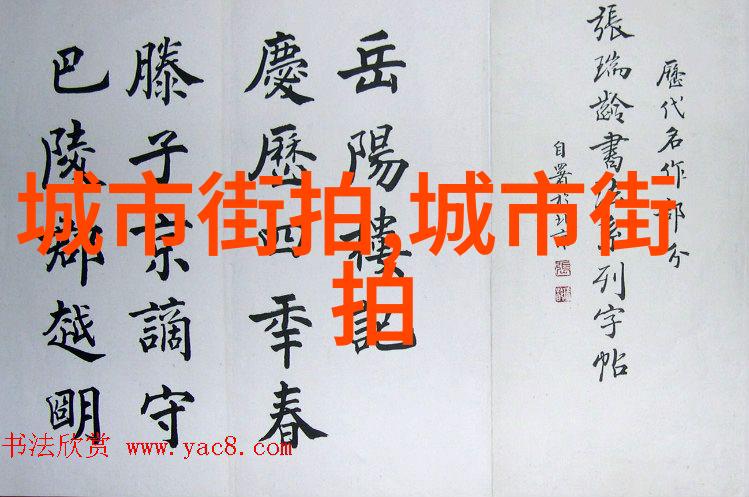 歷代名作部分
張瑞齡書法系列字帖
自署
岳陽樓記
慶歷四年春
滕子京謫守
巴陵郡越朙
城市街拍,城市街
拍
书法欣赏 www.yac8.com